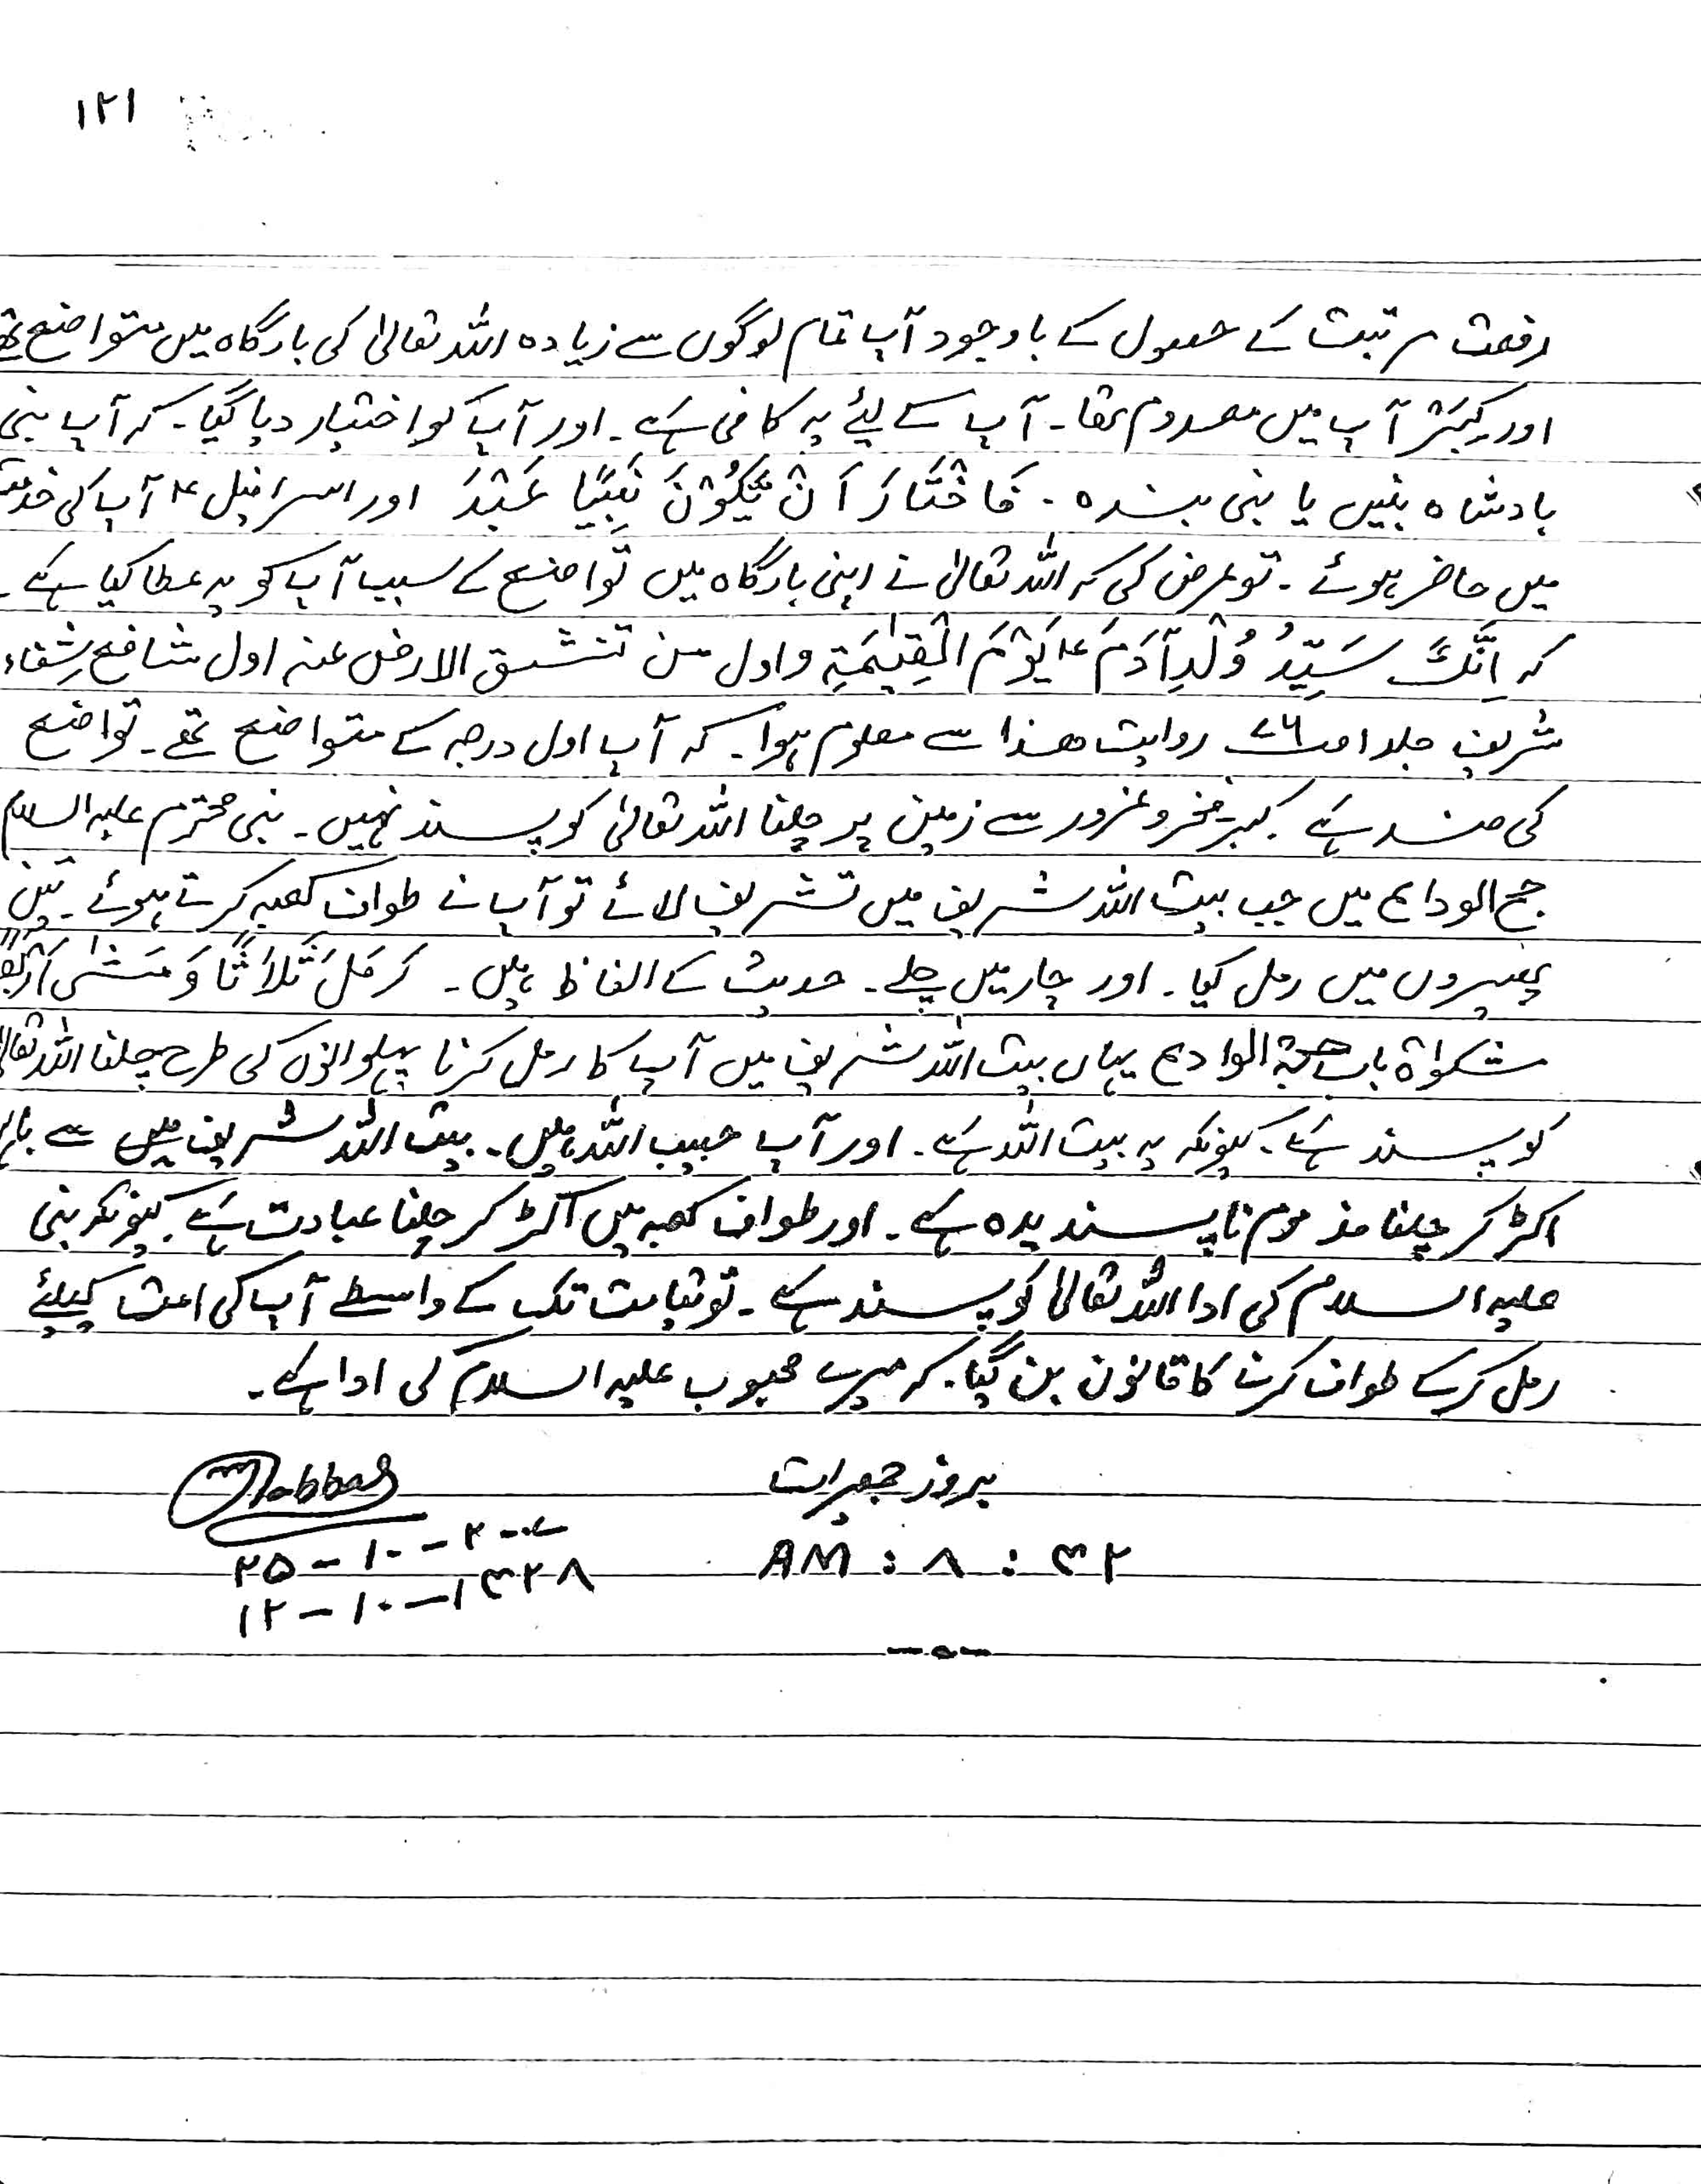 ۱۲۱
رفعت مرتبت کے حصول کے باوجود آپ تمام لوگوں سے زیادہ اللہ تعالیٰ کی بارگاہ میں متواضع تھے
اور کِبَر آپ میں معدوم تھا۔ آپ کے لیئے یہ کافی ہے۔ اور آپ کو اختیار دیا گیا۔ کہ آپ نبی
بادشاہ بنیں یا نبی بندہ۔ فَاخْتَارَ اَنْ یَّکُوْنَ نَبِیًّا عَبْدَ اور اسرافیل ؑ آپ کی خدمت
میں حاضر ہوئے۔ تو عرض کی کہ اللہ تعالیٰ نے اپنی بارگاہ میں تواضع کے سبب آپ کو یہ عطا کیا ہے۔
کہ اِنَّکَ سَیِّدُ وُلْدِ آدَمَ ؑ یَوْمَ الْقِیٰمَۃِ و اول من تنشق الارض عنہ اول شافع شِفاء
شریف جلد ۱ صـ ۷۶ روایت ھذا سے معلوم ہوا۔ کہ آپ اول درجہ کے متواضع تھے۔ تواضع
کی ضد ہے کبر۔ فخر و غرور سے زمین پر چلنا اللہ تعالیٰ کو پسند نہیں۔ نبی محترم علیہ السلام
حج الوداع میں جب بیت اللہ شریف میں تشریف لائے تو آپ نے طواف کعبہ کرتے ہوئے۔ تین
پھیروں میں رمل کیا۔ اور چار میں چلے۔ حدیث کے الفاظ ہیں۔ رَمَلَ ثَلاَثًا وَ مَشٰی اَرْبَعًا
مشکوٰۃ باب حجۃ الوادع یہاں بیت اللہ شریف میں آپ کا رمل کرنا پہلوانوں کی طرح چلنا اللہ تعالیٰ
کو پسند ہے۔ کیونکہ یہ بیت اللہ ہے۔ اور آپ حبیب اللہ ہیں۔ بیت اللہ شریف میں سے باہر
اکڑ کر چلنا مذموم ناپسندیدہ ہے۔ اور طواف کعبہ میں اکڑ کر چلنا عبادت ہے۔ کیونکہ نبی
علیہ السلام کی ادا اللہ تعالیٰ کو پسند ہے۔ تو قیامت تک کے واسطے آپ کی امت کیلئے
رمل کرکے طواف کرنے کا قانون بن گیا۔ کہ میرے محبوب علیہ السلام کی ادا ہے۔
بروز جمعرات
AM : ۸ : ۳۲
۲۵ - ۱۰ - ۲۰۰۷
۱۲ - ۱۰ - ۱۴۲۸